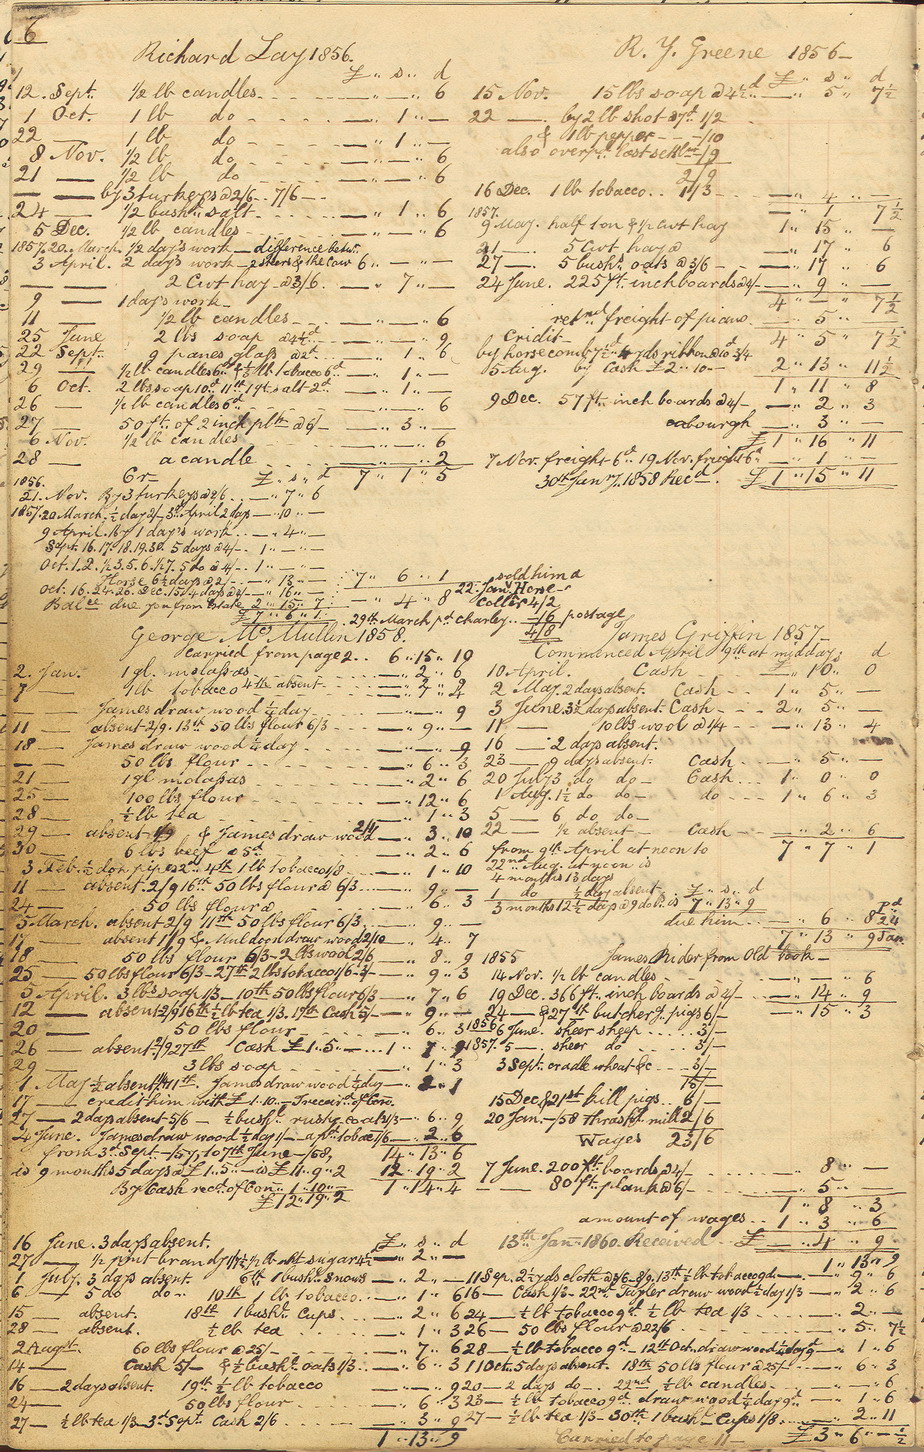 6
Richard Lay 1856.
£ " s " d
12. Sept. ½ lb candles - - - " - " 6
1 Oct. 1 lb do - - " 1 " -
22 — 1 lb do - - " 1 " -
8 Nov. ½ lb do - - " - " 6
21 — ½ lb do - - " - " 6
— — by 3 turkeys @ 2/6 - 7/6 -
24 — ½ bushl. salt - - " 1 " 6
5 Dec. ½ lb candles - - " - " 6
1857. 20. March. ½ day's work — difference betw.
3 April. 2 day's work — 2 steers & the cow 6 " - " -
— — 2 Cwt hay - @ 3/6 - " 7 " -
9 — 1 day's work -
11 — ½ lb candles - - " - " 6
25 June 2 lbs soap @ 4½d - " - " 9
22 Sept. 9 panes glass @ 2d - " 1 " 6
29 — ½ lb candles 6d & ½ lb tobacco 6d - " 1 " -
6 Oct. 2 lbs soap 10d 11th 1 qt salt 2d - " 1 " -
26 — ½ lb candles 6d - " - " 6
27 — 50 ft. of 2 inch plk @ 6/- - " 3 " -
6 Nov. ½ lb candles - " - " 6
28 — a candle - " - " 2
7 " 1 " 5
1856. Cr £ " s " d
21. Nov. By 3 turkeys @ 2/6 - " 7 " 6
1857. 20 March. ½ day 2/- 3d April 2 days - " 10 " -
9 April. By 1 day's work - " 4 " -
Sept. 16. 17. 18. 19. 30. 5 days @ 4/- 1 " - " -
Oct. 1. 2. ½ 3. 5. 6. ½ 7. 5 do @ 4/- 1 " - " -
Horse 6½ days @ 2/- - " 13 " -
Oct. 16. 24. 26. Dec. 15/ 4 days @ 4/- - " 16 " -
Balce due you from Estate 2 " 15 " 7
£ 7 " 6 " 1
7 " 6 " 1
- " 4 " 8
R. Y. Greene 1856 -
£ s d
15 Nov. 15 lbs soap @ 4½d - " 5 " 7½
22 — by 2 lb shot @ 7d 1/2
& 1 lb pepper - -/10
also overpd. last settlmt -/9
2/9
16 Dec. 1 lb tobacco 1/3 - " 4 " -
1 " 7½
1857.
9 May. half ton & ½ Cwt hay 1 " 15 " -
21 — 5 Cwt hay @ - " 17 " 6
27 — 5 bushls. oats @ 3/6 - " 17 " 6
24 June. 225 ft. inch boards @ 4/- - " 9 " -
4 " - " 7½
retnd freight of piano - " 5 " -
Credit - 4 " 5 " 7½
by horse comb 7½d 4 yds ribbon @ 10d 3/4
15 Aug. by Cash £2 " 10 - 2 " 13 " 11½
1 " 11 " 8
9 Dec. 57 ft. inch boards @ 4/- - " 2 " 3
cabourgh - " 3 " -
£ 1 " 16 " 11
7 Nov. freight 6d. 19 Nov. freight 6d - " 1 " -
30th Jany. 1858 Recd. £ 1 " 15 " 11
sold him a
22. Jany. Horse
Collar 4/2
29th March pd Charley -/6 postage
4/8
George McMullin 1858.
Carried from page 2 - 6 " 15 " 10
2. Jan. 1 gl. molasses - " 2 " 6
7 — 1 lb tobacco 4th absent - " 7 " 4
— James draw wood ¼ day - " - " 9
11 — absent 2/9. 13th 50 lbs flour 6/3 - " 9 " -
18 — James draw wood ¼ day - " - " 9
— — 50 lbs flour - " 6 " 3
21 — 1 gl molasses - " 2 " 6
25 — 100 lbs flour - " 12 " 6
28 — ½ lb tea - " 1 " 3
29 — absent & James draw wood 2/1 - " 3 " 10
30 — 6 lbs beef @ 5d - " 2 " 6
3 Feb. ½ doz pipes 2d 4th 1 lb tobacco 1/8 - " 1 " 10
11 — absent 2/9 16th 50 lbs flour @ 6/3 - " 9 " -
24 — 50 lbs flour @ - " 6 " 3
5 March. absent 2/9 11th 50 lbs flour 6/3 - " 9 " -
17 — absent 1/9 & Muldoon draw wood 2/10 - " 4 " 7
18 — 50 lbs flour 6/3 - 2 lbs wool 2/6 - " 8 " 9
25 — 50 lbs flour 6/3 - 27th 2 lbs tobacco 1/6 - 3/- - " 9 " 3
5 April. 3 lbs soap 1/3 - 10th 50 lbs flour 6/3 - " 7 " 6
12 — absent 2/9 16th ½ lb tea 1/3. 17th Cash 5/- - " 9 " -
20 — 50 lbs flour - " 6 " 3
26 — absent 2/9 27th Cash £1 " 5 " - 1 " 7 " 9
29 — 3 lbs soap - " 1 " 3
1 May ½ absent 1/4 11th. James draw wood ¼ dy - " 2 " 1
17 — credit him with £1 " 10 - I receivd of Corn.
27 — 2 days absent 5/6 - ½ bushl. rusky oats 1/3 - " 6 " 9
4 June. James draw wood ¼ day 1/- a pd. tobac 1/6 - " 2 " 6
from 3d Sept. -/57, to 7th June -/58, 14 " 13 " 6
is 9 months 5 days @ £1 " 5 " - is £11 " 9 " 2 12 " 19 " 2
By Cash recd. of Corn " 1 " 10 " - 1 " 14 " 4
£12 " 19 " 2
16 June. 3 days absent. £ " s " d
27 — ½ pint brandy 1/7½ ½ lb wt sugar 4½ - " 2 " -
1 July. 3 days absent. 6th 1 bushl. Snows - " 2 " -
6 — 5 do do - 10th 1 lb tobacco - " 1 " 6
15 — absent. 18th 1 bushl. Cups - " 2 " 6
28 — absent. ½ lb tea - " 1 " 3
2 Augst. 60 lbs flour @ 25/- - " 7 " 6
14 — Cash 5/- & ½ bushl. oats 1/3 - " 6 " 3
16 — 2 days absent. 19th ½ lb tobacco - " - " 9
24 — 50 lbs flour - " 6 " 3
27 — ½ lb tea 1/3 - 3d Sept. Cash 2/6 - " 3 " 9
1 " 13 " 9
James Griffin 1857 -
Commenced April 9th at midday £ d
10 April. Cash - " 10 " 0
2 May. 2 days absent. Cash - 1 " 5 " -
3 June. 3½ days absent. Cash - 2 " 5 " -
11 — 10 lbs wool @ 1/4 - " 13 " 4
16 — 2 days absent.
23 — 9 days absent. Cash - " 5 " -
20 July 3 do do - Cash 1 " 0 " 0
1 Aug. 1½ do do - do - 1 " 6 " 3
5 — 6 do do -
22 — ½ absent - Cash - " 2 " 6
from 9th April at noon to 7 " 7 " 1
22nd Aug. at noon is
4 months 13 days
1 do ½ days absent £ " s " d
3 months 12½ days @ 9 dols. is 7 " 13 " 9
due him - " 6 " 8 pd 24
7 " 13 " 9 Jan.
1855 James Rider from Old book -
14 Nov. ½ lb candles - " - " 6
19 Dec. 366 ft. inch boards @ 4/- - " 14 " 9
24 — & 27th butcherg. pigs 6/- - " 15 " 3
1856 6 June. sheer sheep 3/-
1857 5 — sheer do 3/-
3 Sept. cradle wheat &c 3/-
15/-
15 Dec. & 21st kill pigs 6/-
20 Jan. -/58 thrashg. mill 2/6
Wages 23/6
7 June. 200 ft. boards @ 4/- - " 8 " -
— — 80 ft. plank @ 6/- - " 5 " -
1 " 8 " 3
amount of wages - 1 " 3 " 6
13th Jany. 1860. Received £ - " 4 " 9
1 " 13 " 9
11 Sep. 2½ yds cloth @ 3/6 - 8/9. 13th ½ lb tobacco 9d - " 9 " 6
16 — Cash 1/3 - 22nd Tayler draw wood ½ day 1/3 - " 2 " 6
24 — ½ lb tobacco 9d ½ lb tea 1/3 - " 2 " -
26 — 50 lbs flour @ 22/6 - " 5 " 7½
28 — ½ lb tobacco 9d - 12th Oct. draw wood ¼ day 9d - " 1 " 6
11 Oct. 5 days absent. 18th 50 lbs flour @ 25/- - " 6 " 3
20 — 2 days do - 22nd ½ lb candles - " - " 6
23 — ½ lb tobacco 9d draw wood ¼ day 9d - " 1 " 6
27 — ½ lb tea 1/3 - 30th 1 bushl. Cups 1/8 - " 2 " 11
Carried to page 11 £ 3 " 6 " - ½